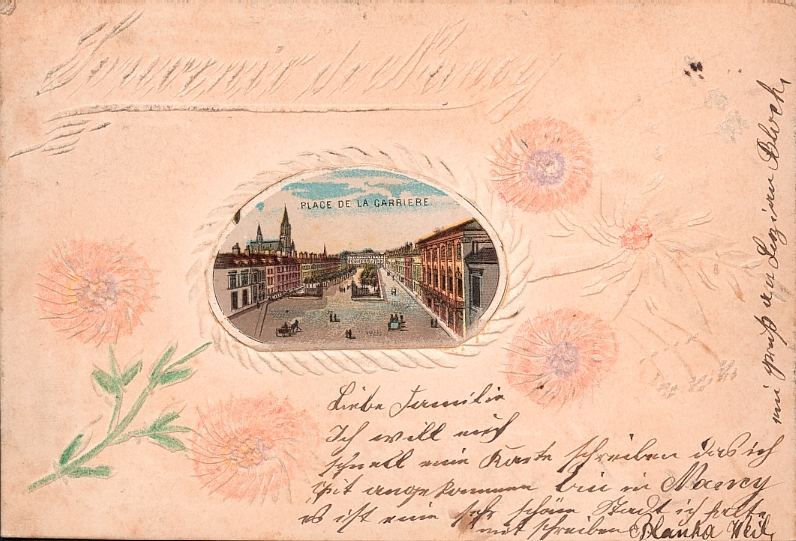 Souvenir de Nancy
PLACE DE LA CARRIERE
Liebe Familie
Ich will euch
schnell eine Karte schreiben das ich
gut angekommen bin in Nancy
es ist eine sehr schöne Stadt ich
mit schreiben Blanka Weil
ein gruß an Bloch